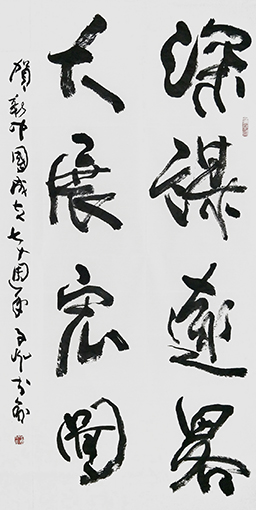 深謀遠略
大展宏圖
賀新中國成立七十周年